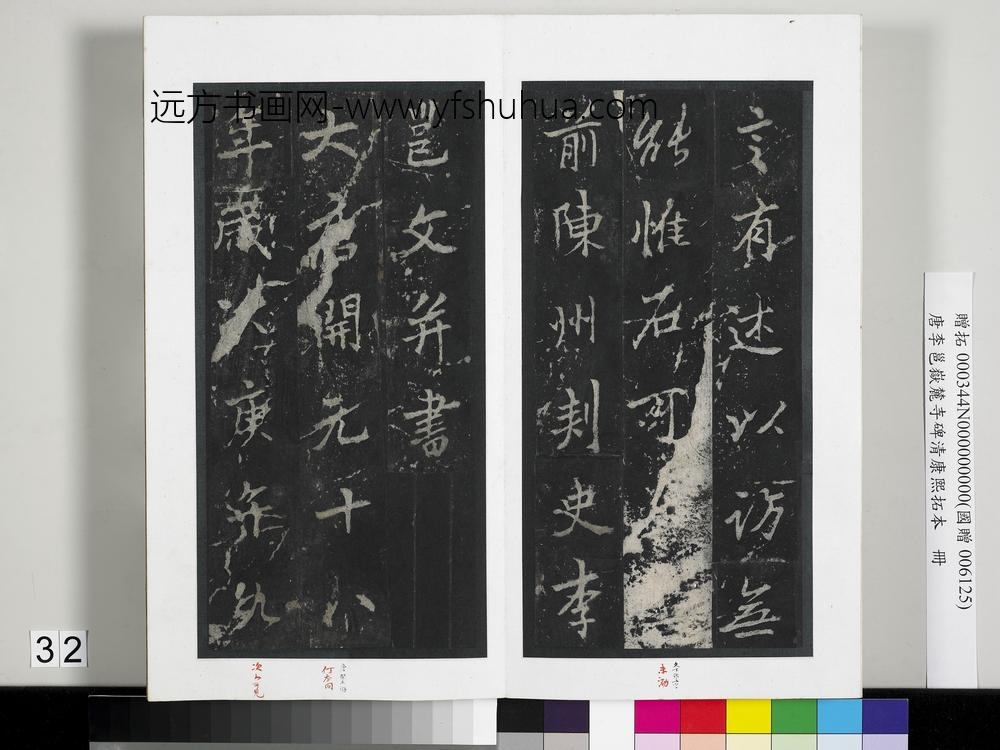 远方书画网-www.yfshuhua.com
言有述以謗並
能惟石可
前陳州刾史李
邕文并書
大唐開元十八
年歲次庚
贈拓 000344N000000000(國贈 006125)
唐李邕嶽麓寺碑清康熙拓本 冊
32
未泐